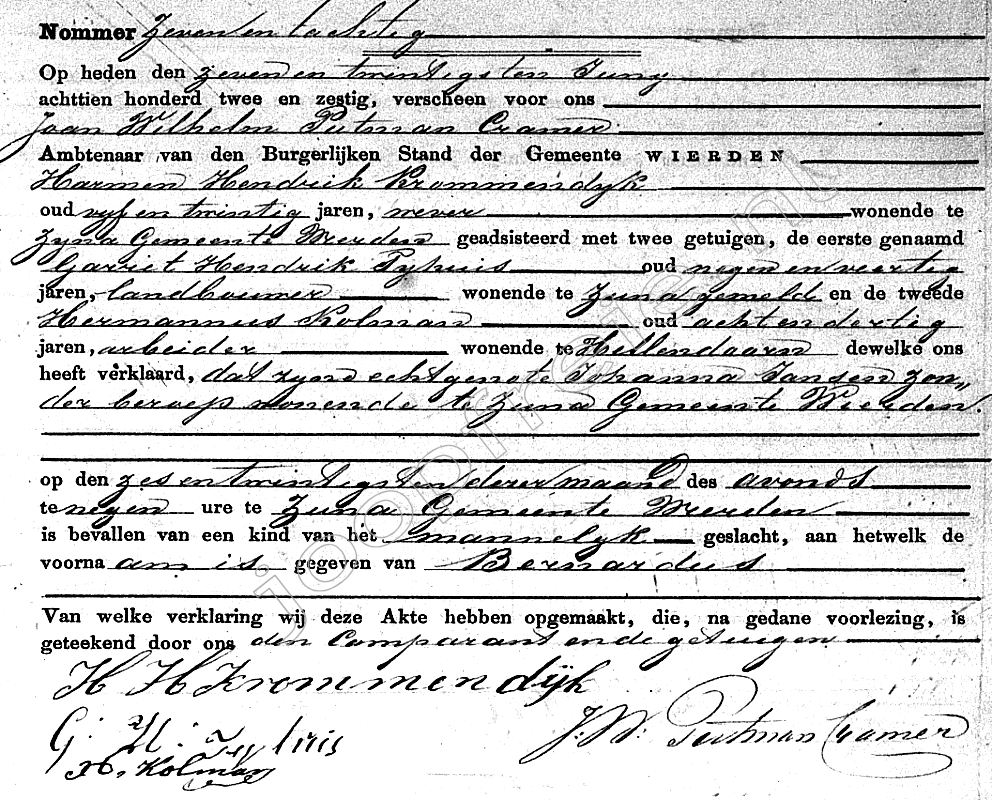 Nommer Zeven en tachtig
Op heden den zeven en twintigsten Juny
achttien honderd twee en zestig, verscheen voor ons
Joan Wilhelm Putman Cramer
Ambtenaar van den Burgerlijken Stand der Gemeente WIERDEN
Harmen Hendrik Krommendyk
oud vyf en twintig jaren, wever wonende te
Zuna Gemeente Wierden geadsisteerd met twee getuigen, de eerste genaamd
Garriet Hendrik Tyhuis oud negen en veertig
jaren, landbouwer wonende te Zuna gemeld en de tweede
Hermannus Kolman oud acht en dertig
jaren, arbeider wonende te Hellendoorn dewelke ons
heeft verklaard, dat zyne echtgenote Johanna Jansen zon„
der beroep wonende te Zuna Gemeente Wierden.
op den zes en twintigsten dezer maand des avonds
te negen ure te Zuna Gemeente Wierden
is bevallen van een kind van het mannelyk geslacht, aan hetwelk de
voorna am is gegeven van Bernardus
Van welke verklaring wij deze Akte hebben opgemaakt, die, na gedane voorlezing, is
geteekend door ons den Comparant en de getuigen
H H Krommendijk
G. H. Tyhuis
J. W. Putman Cramer
H. Kolman